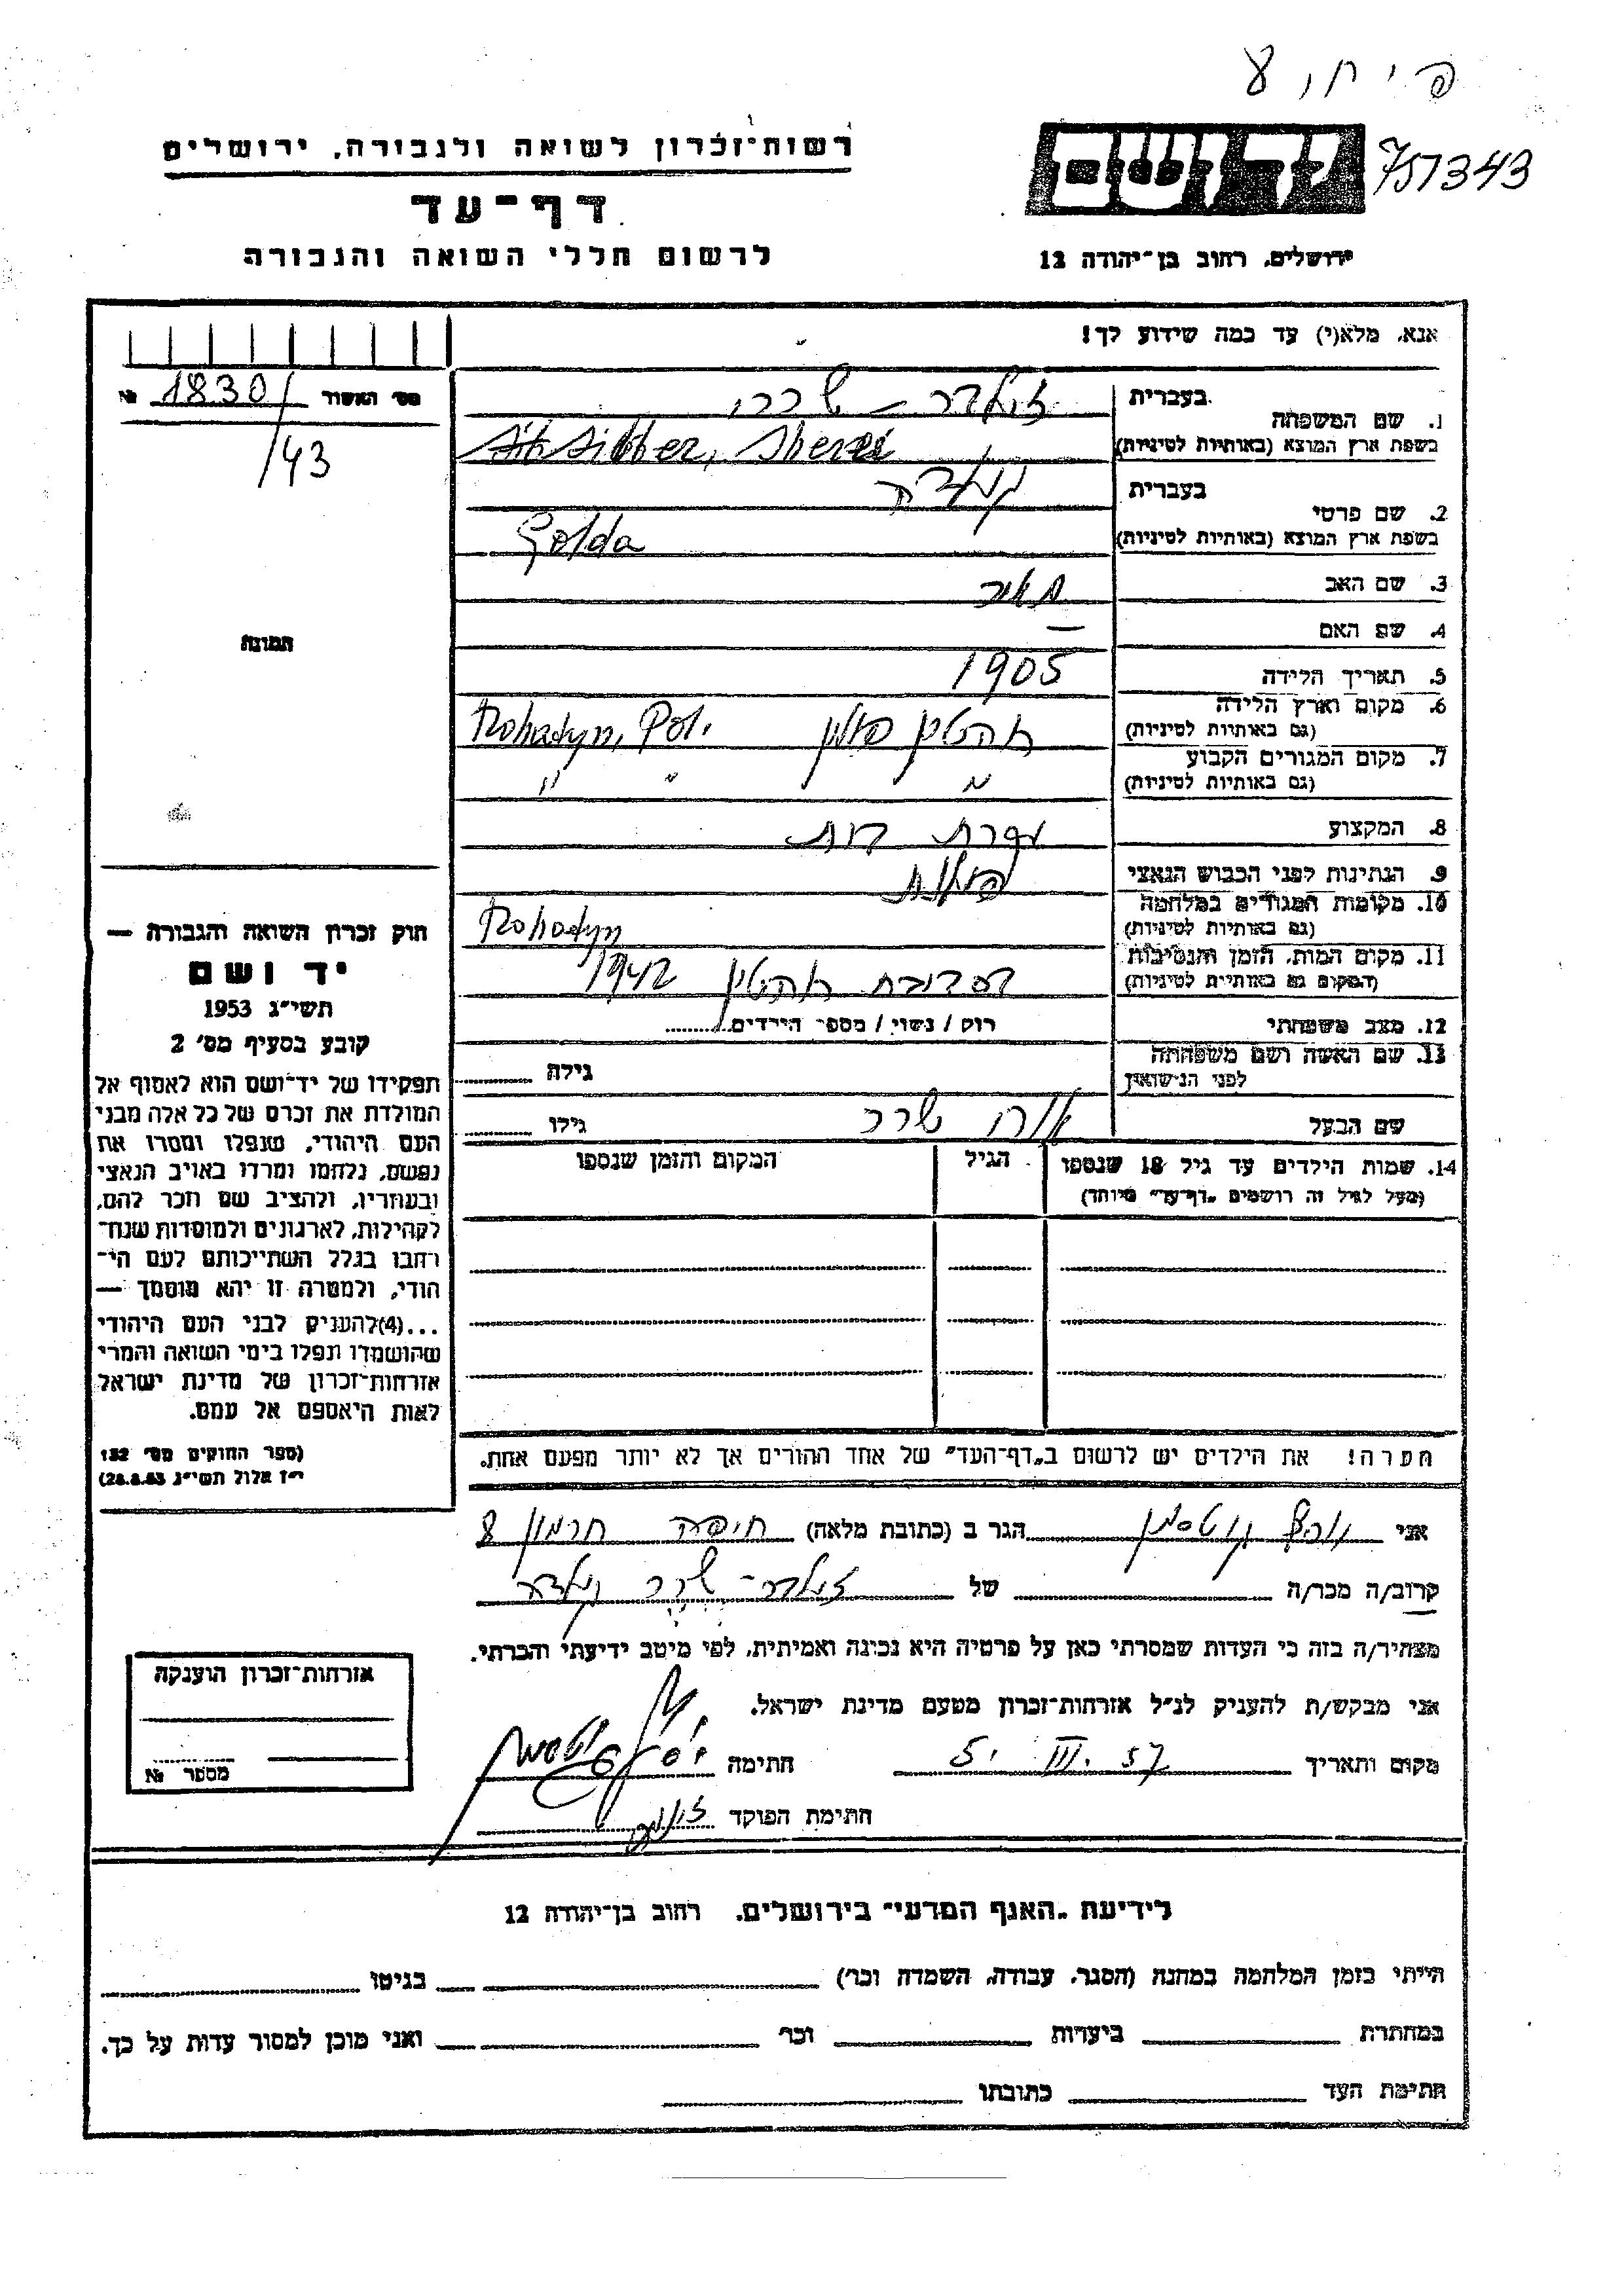 757343
יד ושם
רשות־זכרון לשואה ולגבורה, ירושלים
דף־עד
לרשום חללי השואה והגבורה
ירושלים, רחוב בן־יהודה 12
אנא, מלא(י) עד כמה שידוע לך!
מס' האשור № 1830/
/43
תמונה
1. שם המשפחה
בעברית זילבר – שרר
בשפת ארץ המוצא (באותיות לטיניות) Silber,
2. שם פרטי
בעברית גולדה
בשפת ארץ המוצא (באותיות לטיניות) Golda
3. שם האב מאיר
4. שם האם —
5. תאריך הלידה 1905
6. מקום וארץ הלידה
(גם באותיות לטיניות) רוהטין פולין Rohatyn, Pol.
7. מקום המגורים הקבוע
(גם באותיות לטיניות) " " "
8. המקצוע עקרת בית
9. הנתינות לפני הכבוש הנאצי פולנית
10. מקומות המגורים במלחמה
(גם באותיות לטיניות) Rohatyn
11. מקום המות, הזמן והנסיבות
(המקום גם באותיות לטיניות) בסביבת רוהטין 1942
12. מצב משפחתי רוק / נשוי / מספר הילדים
13. שם האשה ושם משפחתה
לפני הנישואין גילה
שם הבעל שרר גילו
14. שמות הילדים עד גיל 18 שנספו הגיל המקום והזמן שנספו
(מעל לגיל זה רושמים „דף־עד" מיוחד)
חוק זכרון השואה והגבורה —
יד ושם
תשי"ג 1953
קובע בסעיף מס' 2
תפקידו של יד־ושם הוא לאסוף אל
המולדת את זכרם של כל אלה מבני
העם היהודי, שנפלו ומסרו את
נפשם, נלחמו ומרדו באויב הנאצי
ובעוזריו, ולהציב שם וזכר להם,
לקהילות, לארגונים ולמוסדות שנח־
רבו בגלל השתייכותם לעם הי־
הודי, ולמטרה זו יהא מוסמך —
...(4)להעניק לבני העם היהודי
שהושמדו ונפלו בימי השואה והמרי
אזרחות־זכרון של מדינת ישראל
לאות היאספם אל עמם.
(ספר החוקים מס' 132
י"ז אלול תשי"ג 28.8.53)
הערה! את הילדים יש לרשום ב„דף־העד" של אחד ההורים אך לא יותר מפעם אחת.
אני יוסף גוטסמן הגר ב (כתובת מלאה) חיפה חרמון 8
קרוב/ה מכר/ה של זילבר־שרר גולדה
מצהיר/ה בזה כי העדות שמסרתי כאן על פרטיה היא נכונה ואמיתית, לפי מיטב ידיעתי והכרתי.
אני מבקש/ת להעניק לנ"ל אזרחות־זכרון מטעם מדינת ישראל.
מקום ותאריך 5. III. 57 חתימה יוסף גוטסמן
חתימת הפוקד
אזרחות־זכרון הוענקה
מספר №
לידיעת „האגף המדעי" בירושלים, רחוב בן־יהודה 12
הייתי בזמן המלחמה במחנה (הסגר, עבודה, השמדה וכו') בגיטו
במחתרת ביערות וכו' ואני מוכן למסור עדות על כך.
חתימת העד כתובתו